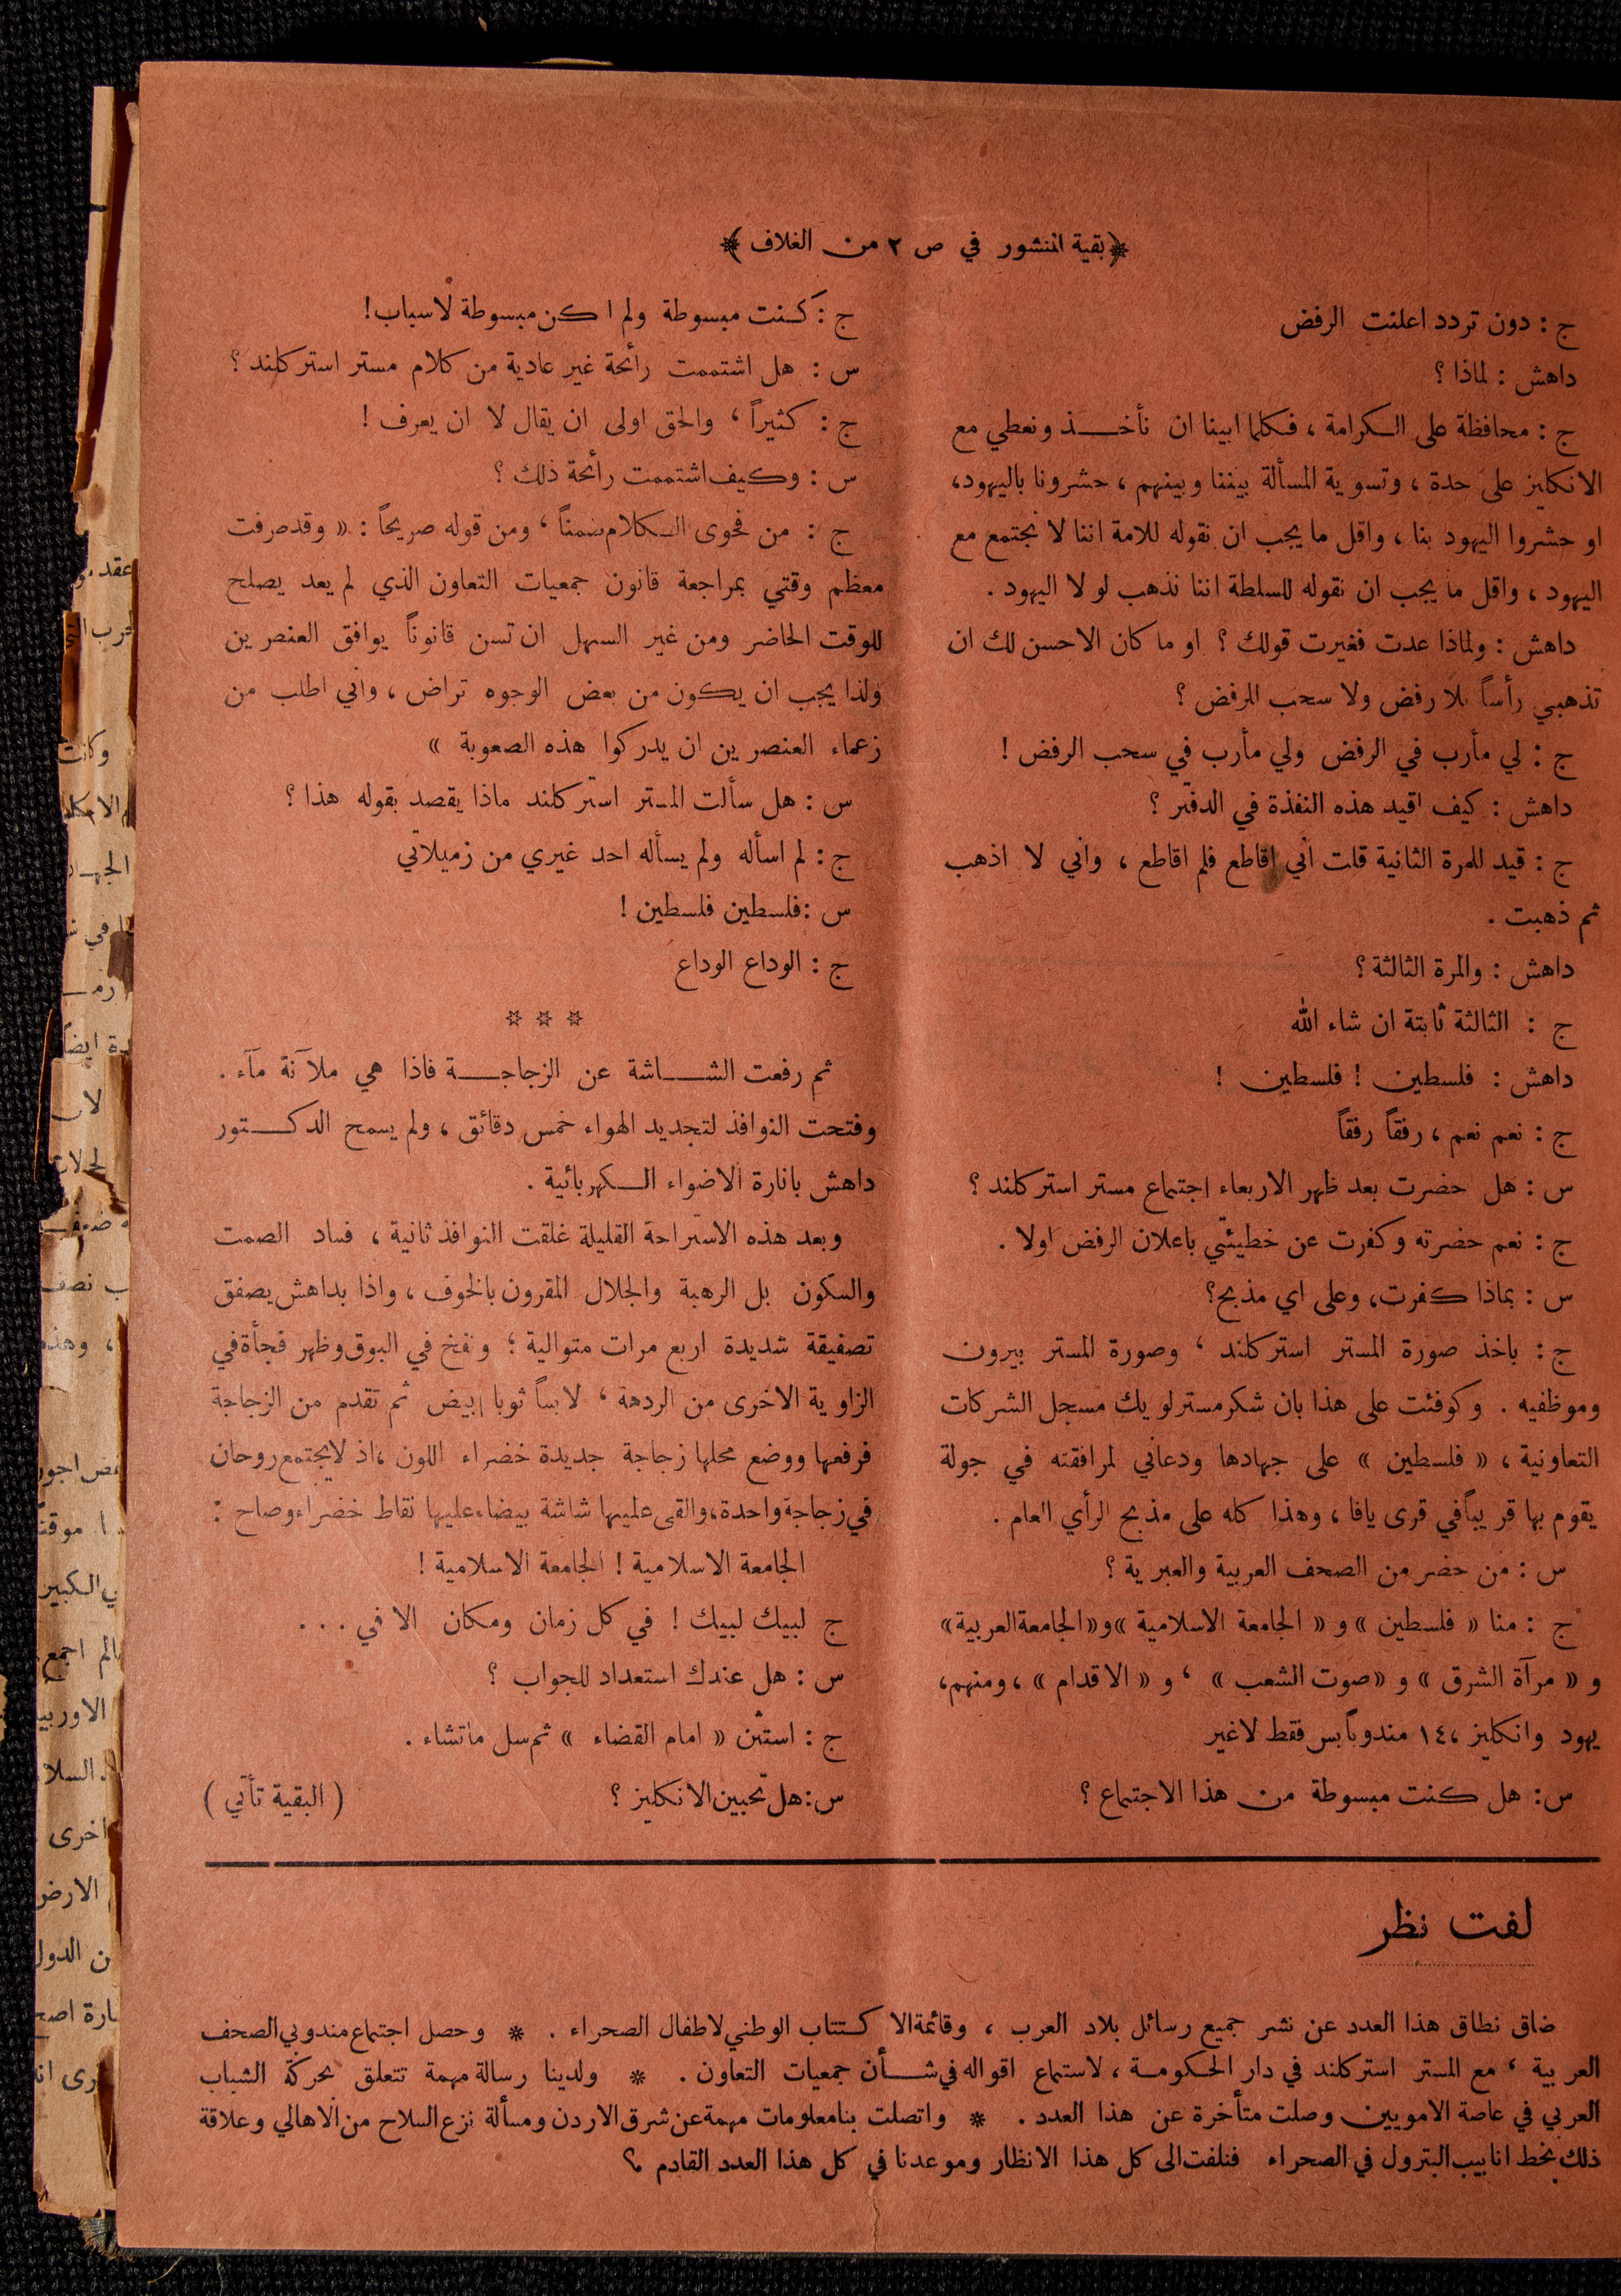 ﴿ بقية المنشور في ص ٢ من الغلاف ﴾
ج : دون تردد اعلنت الرفض
داهش : لماذا ؟
ج : محافظة على الكرامة ، فكلما ابينا ان نأخذ ونعطي مع
الانكليز على حدة ، وتسوية المسألة بيننا وبينهم ، حشرونا باليهود ،
او حشروا اليهود بنا ، واقل ما يجب ان نقوله للامة اننا لا نجتمع مع
اليهود ، واقل ما يجب ان نقوله للسلطة اننا نذهب لو لا اليهود .
داهش : ولماذا عدت فغيرت قولك ؟ او ما كان الاحسن لك ان
تذهبي رأساً بلا رفض ولا سحب الرفض ؟
ج : لي مأرب في الرفض ولي مأرب في سحب الرفض !
داهش : كيف اقيد هذه النفذة في الدفتر ؟
ج : قيد للمرة الثانية قلت اني اقاطع فلم اقاطع ، واني لا اذهب
ثم ذهبت .
داهش : والمرة الثالثة ؟
ج : الثالثة ثابتة ان شاء الله
داهش : فلسطين ! فلسطين !
ج : نعم نعم ، رفقاً رفقاً
س : هل حضرت بعد ظهر الاربعاء اجتماع مستر استركلند ؟
ج : نعم حضرته وكفرت عن خطيئتي باعلان الرفض اولا .
س : بماذا كفرت، وعلى اي مذبح؟
ج : باخذ صورة المستر استركلند ، وصورة المستر بيرون
وموظفيه . وكوفئت على هذا بان شكر مستر لويك مسجل الشركات
التعاونية ، « فلسطين » على جهادها ودعاني لمرافقته في جولة
يقوم بها قريباً في قرى يافا ، وهذا كله على مذبح الرأي العام .
س : من حضر من الصحف العربية والعبرية ؟
ج : منا « فلسطين » و « الجامعة الاسلامية » و« الجامعة العربية»
و « مرآة الشرق » و « صوت الشعب » ، و « الاقدام » ، ومنهم،
يهود وانكليز ، ١٤ مندوباً بس فقط لاغير
س : هل كنت مبسوطة من هذا الاجتماع ؟
ج : كنت مبسوطة ولم اكن مبسوطة لاسباب !
س : هل اشتممت رأئحة غير عادية من كلام مستر استركلند ؟
ج : كثيراً ، والحق اولى ان يقال لا ان يعرف !
س : وكيف اشتممت رأئحة ذلك ؟
ج : من فحوى الكلام ضمناً ، ومن قوله صريحاً : « وقد صرفت
معظم وقتي بمراجعة قانون جمعيات التعاون الذي لم يعد يصلح
للوقت الحاضر ومن غير السهل ان تسن قانوناً يوافق العنصرين
ولذا يجب ان يكون من بعض الوجوه تراض ، واني اطلب من
زعماء العنصرين ان يدركوا هذه الصعوبة »
س : هل سألت المستر استركلند ماذا يقصد بقوله هذا ؟
ج : لم اسأله ولم يسأله احد غيري من زميلاتي
س : فلسطين فلسطين !
ج : الوداع الوداع
* * *
ثم رفعت الشاشة عن الزجاجة فاذا هي ملآنة مآء .
وفتحت النوافذ لتجديد الهواء خمس دقائق ، ولم يسمح الدكتور
داهش بانارة الاضواء الكهربائية .
وبعد هذه الاستراحة القليلة غلقت النوافذ ثانية ، فساد الصمت
والسكون بل الرهبة والجلال المقرون بالخوف ، واذا بداهش يصفق
تصفيقة شديدة اربع مرات متوالية ؛ ونفخ في البوق وظهر فجأة في
الزاوية الاخرى من الردهة ، لابساً ثوبا ابيض ثم تقدم من الزجاجة
فرفعها ووضع محلها زجاجة جديدة خضراء اللون ، اذ لايجتمع روحان
في زجاجة واحدة، والقى عليها شاشة بيضاء عليها نقاط خضراء وصاح :
الجامعة الاسلامية ! الجامعة الاسلامية !
ج لبيك لبيك ! في كل زمان ومكان الا في . . .
س : هل عندك استعداد للجواب ؟
ج : استثن « امام القضاء » ثم سل ماتشاء .
س : هل تحبين الانكليز ؟ ( البقية تأتي )
لفت نظر
ضاق نطاق هذا العدد عن نشر جميع رسائل بلاد العرب ، وقائمة الاكتتاب الوطني لاطفال الصحراء . * وحصل اجتماع مندوبي الصحف
العربية ، مع المستر استركلند في دار الحكومة ، لاستماع اقواله في شأن جمعيات التعاون . * ولدينا رسالة مهمة تتعلق بحركة الشباب
العربي في عاصة الامويين وصلت متأخرة عن هذا العدد . * واتصلت بنا معلومات مهمة عن شرق الاردن ومسألة نزع السلاح من الاهالي وعلاقة
ذلك بخط انابيب البترول في الصحراء فنلفت الى كل هذا الانظار وموعدنا في كل هذا العدد القادم ؟